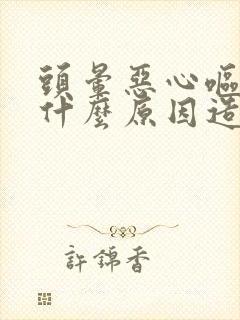 頭暈惡心嘔
什麼原因造
許錦香